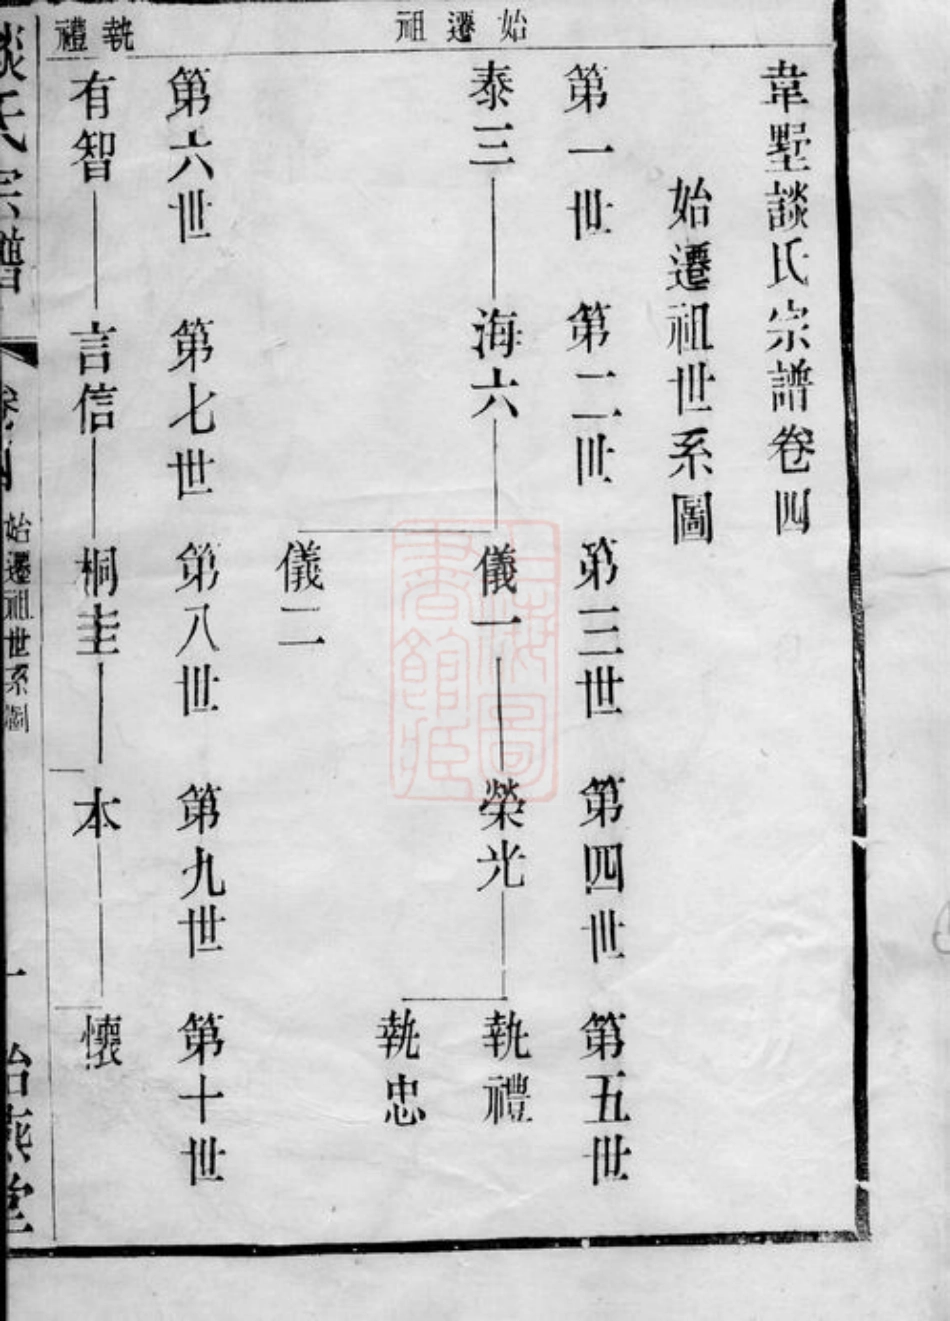 韋墅談氏宗譜卷四
始遷祖世系圖
始遷祖
第一世 第二世 第三世 第四世 第五世
泰三 海六 儀一 榮光 執禮
執忠
儀二
執禮
第六世 第七世 第八世 第九世 第十世
有智 言信 桐圭 本 懷
談氏宗譜 卷四 始遷祖世系圖 一 怡燕堂
上海圖書館藏